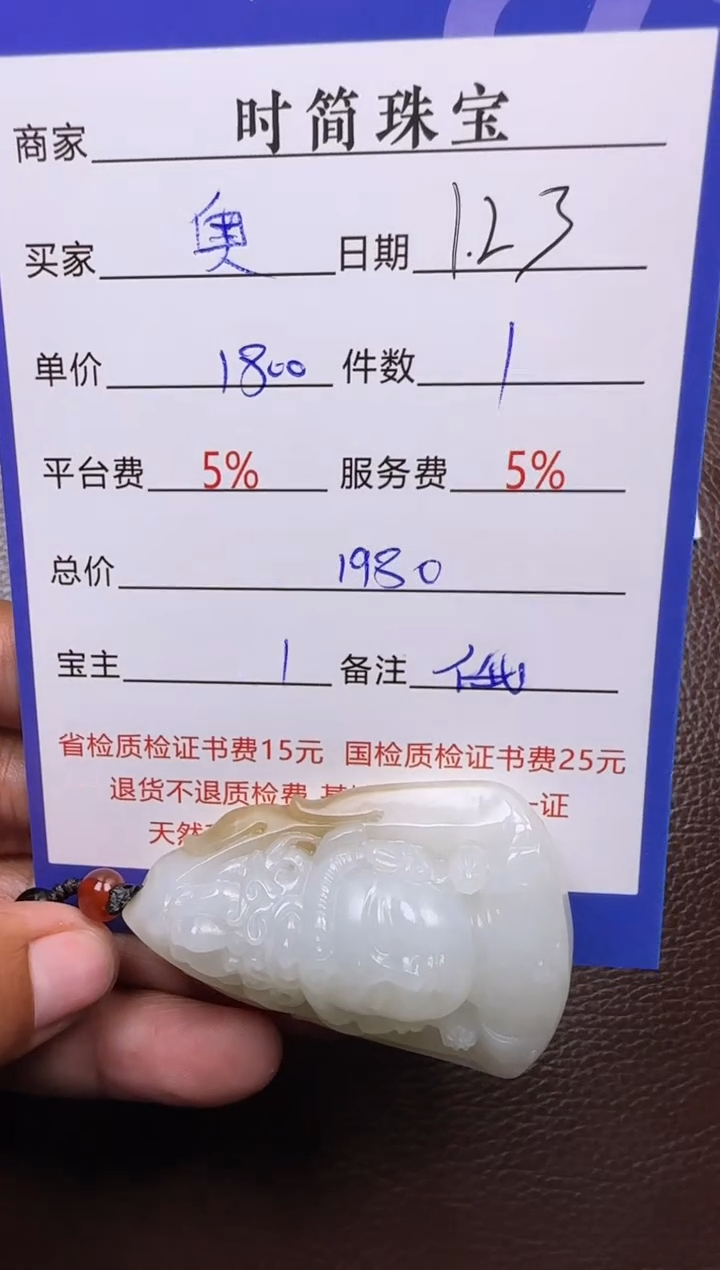 商家 时简珠宝
买家 奥 日期 1.23
单价 1800 件数 1
平台费 5% 服务费 5%
总价 1980
宝主 1 备注
省检质检证书费15元 国检质检证书费25元
退货不退质检费 一证
天然